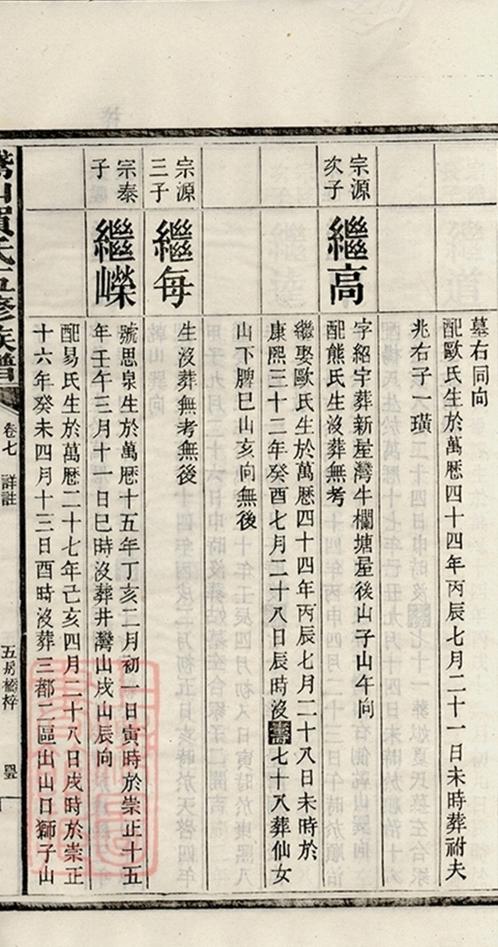 墓右同向
配歐氏生於萬厯四十四年丙辰七月二十一日未時葬祔夫
兆右子一璜
宗源次子
繼高
字紹宇葬新屋灣牛欄塘屋後山子山午向
配熊氏生沒葬無考
繼娶歐氏生於萬厯四十四年丙辰七月二十八日未時於
康熙三十二年癸酉七月二十八日辰時沒壽七十八葬仙女
山下牌巳山亥向無後
宗源三子
繼每
生沒葬無考無後
宗泰子
繼嶸
號思泉生於萬厯十五年丁亥二月初一日寅時於崇正十五
年壬午三月十一日巳時沒葬井灣山戌山辰向
配易氏生於萬厯二十七年己亥四月二十八日戌時於崇正
十六年癸未四月十三日酉時沒葬三都二區出山口獅子山
賀氏五修族譜
卷七
詳註
五房橋梓